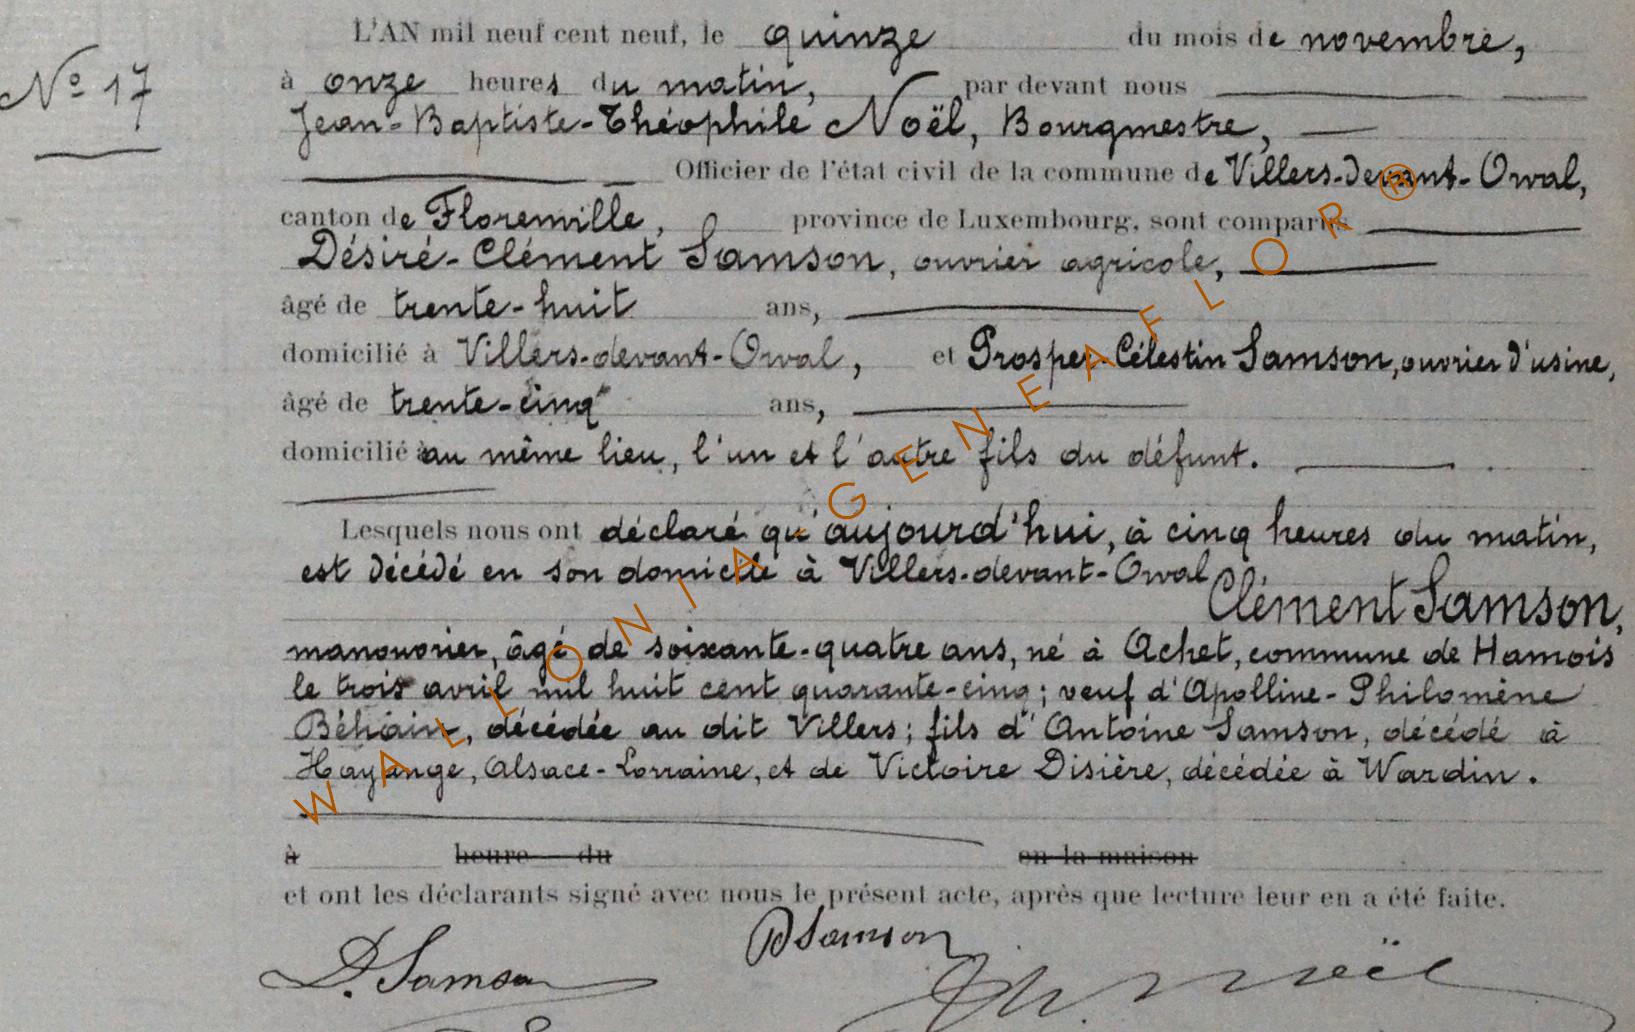 L'AN mil neuf cent neuf, le quinze du mois de novembre,
N° 17
à onze heures du matin, par devant nous
Jean-Baptiste-Théophile Noël, Bourgmestre,
Officier de l'état civil de la commune de Villers-devant-Orval,
canton de Florenville, province de Luxembourg, sont comparus
Désiré-Clément Samson, ouvrier agricole,
âgé de trente-huit ans,
domicilié à Villers-devant-Orval, et Prosper-Célestin Samson, ouvrier d'usine,
âgé de trente-cinq ans,
domicilié à au même lieu, l'un et l'autre fils du défunt.
Lesquels nous ont déclaré qu'aujourd'hui, à cinq heures du matin,
est décédé en son domicile à Villers-devant-Orval,
Clément Samson,
manouvrier, âgé de soixante-quatre ans, né à Achet, commune de Hamois
le trois avril mil huit cent quarante-cinq; veuf d'Apolline-Philomène
Béhain, décédée au dit Villers; fils d'Antoine Samson, décédé à
Hayange, Alsace-Lorraine, et de Victoire Disière, décédée à Wardin.
à heure du en la maison
et ont les déclarants signé avec nous le présent acte, après que lecture leur en a été faite.
D. Samson
P Samson
Th. Noël
WALLONIA-GENEAFLOR®